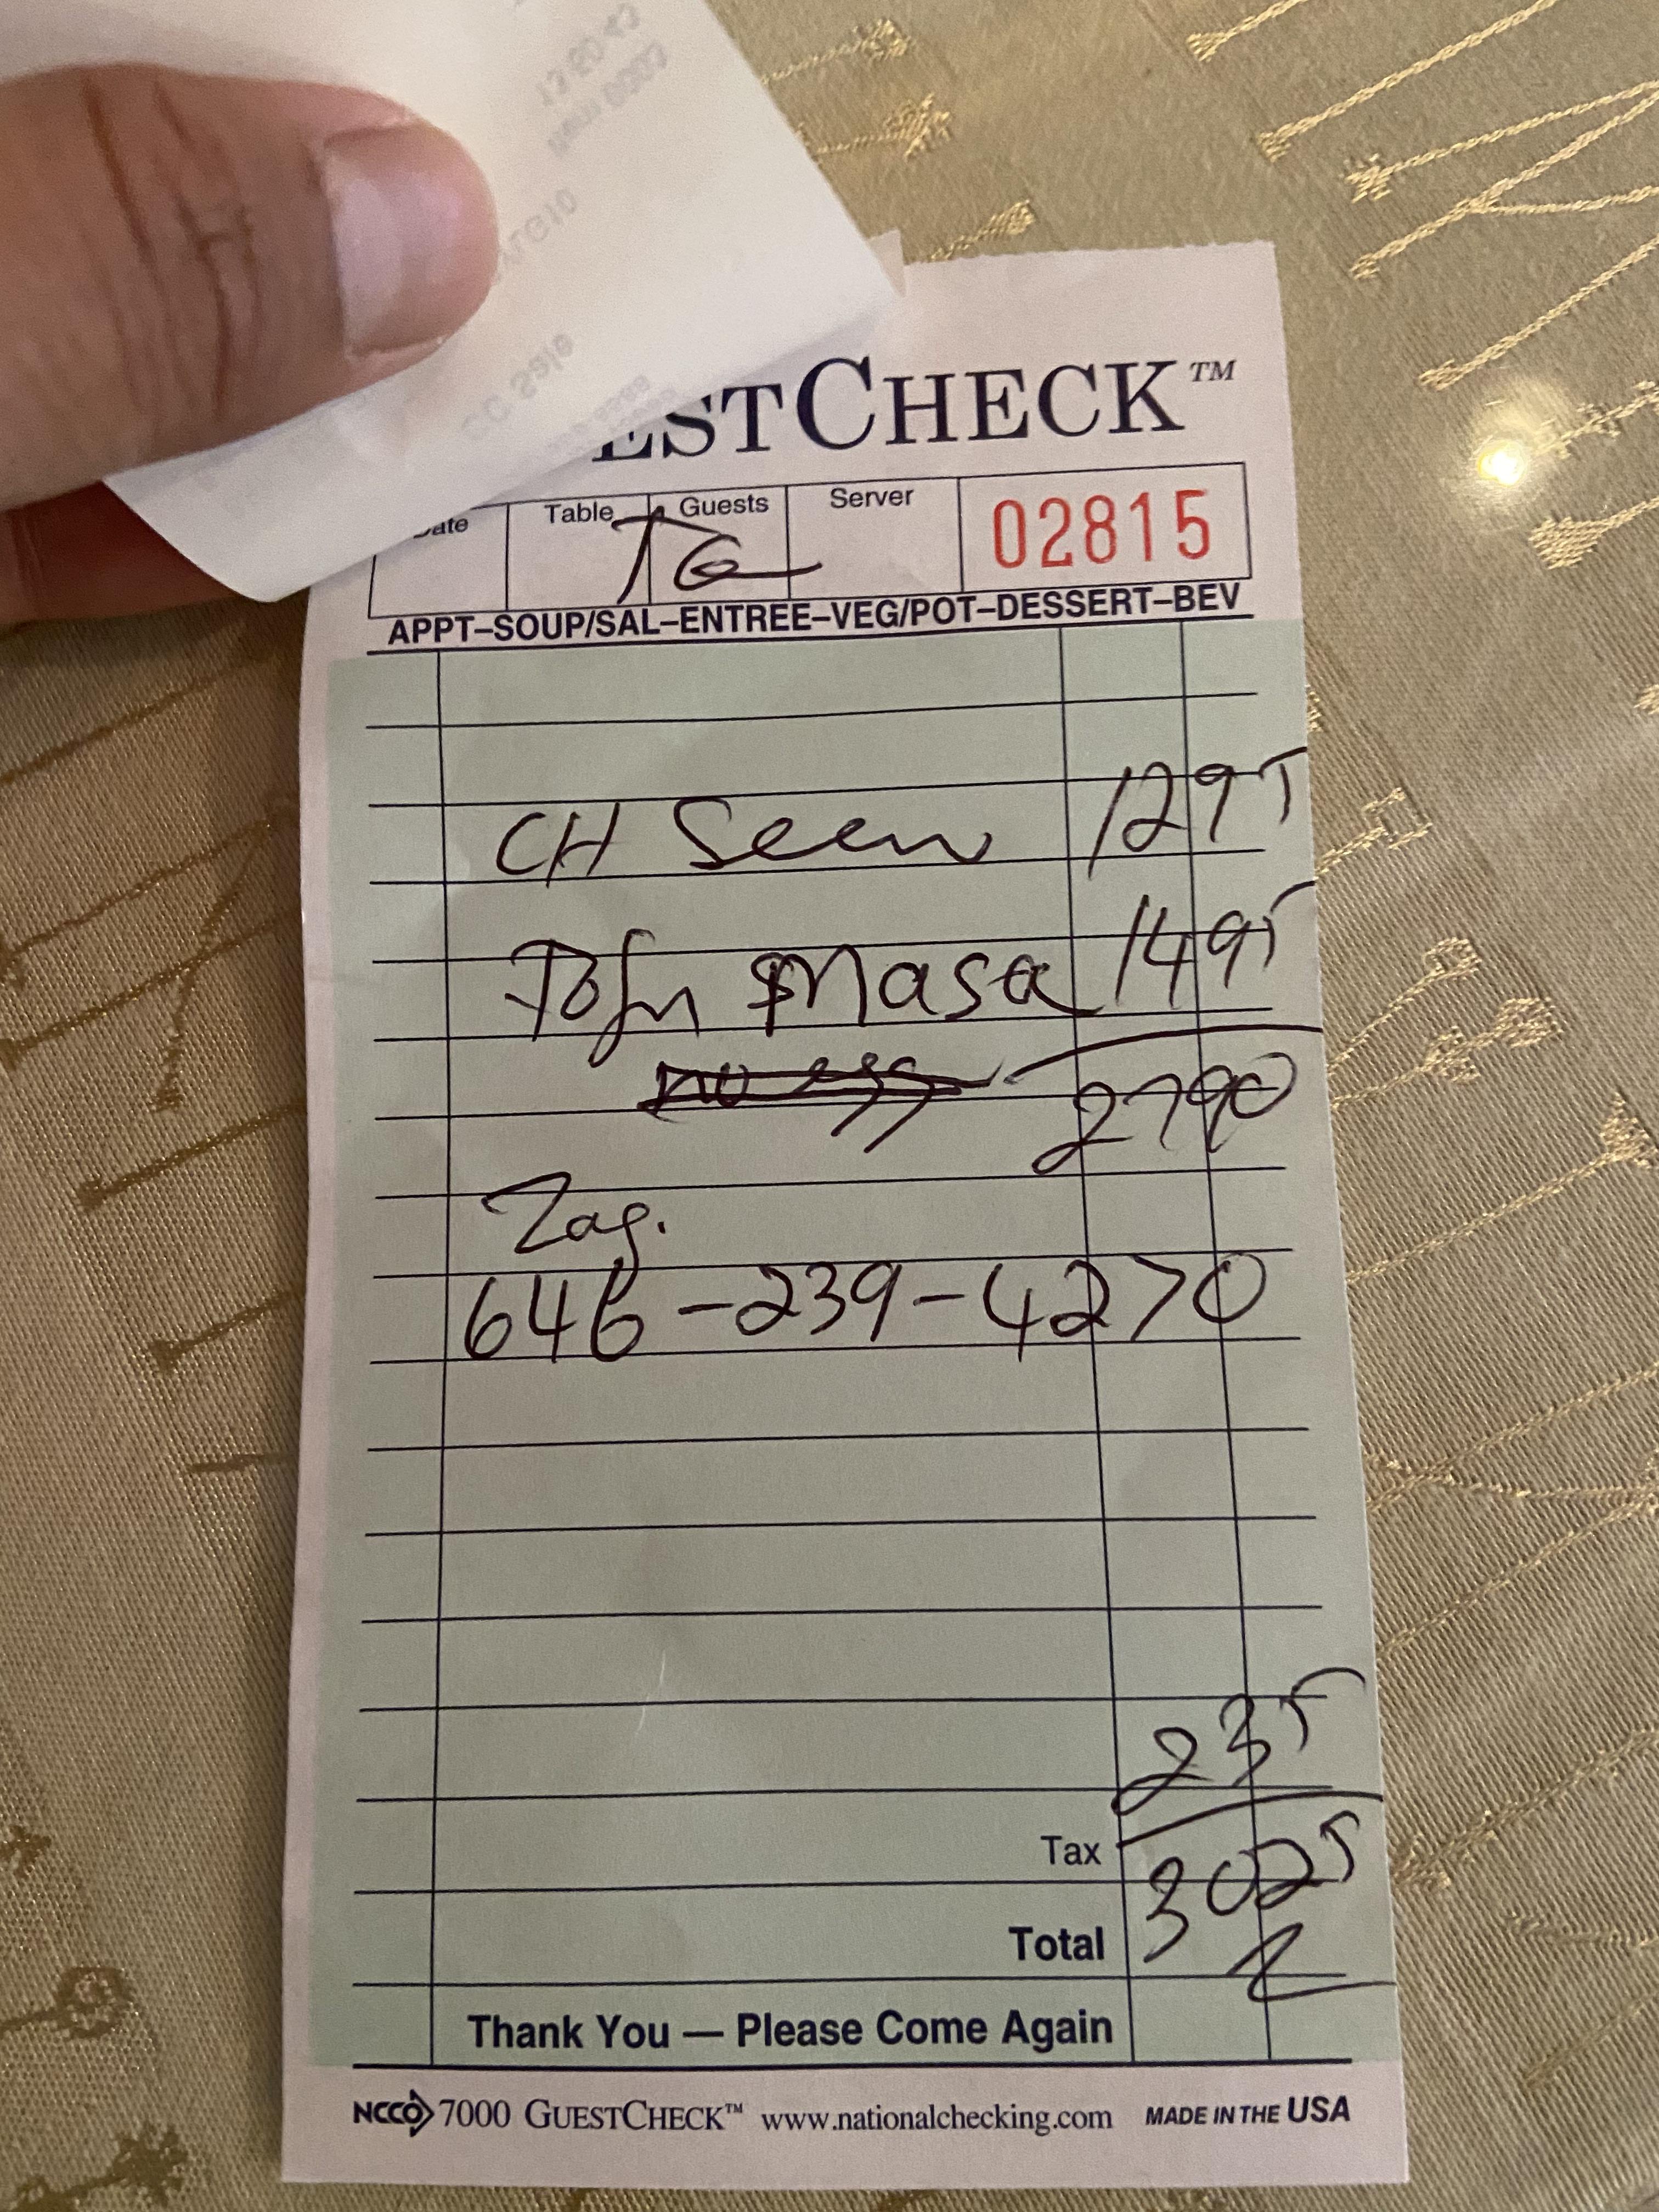 ESTCHECK™
ate Table Guests Server 02815
TG
APPT–SOUP/SAL–ENTREE–VEG/POT–DESSERT–BEV
CH Seew 1295
Tofu Masa 1495
no egg 2790
Zag.
646-239-4270
235
Tax
3025
Total
Thank You — Please Come Again
NCCO 7000 GUESTCHECK™ www.nationalchecking.com MADE IN THE USA
CC Sale